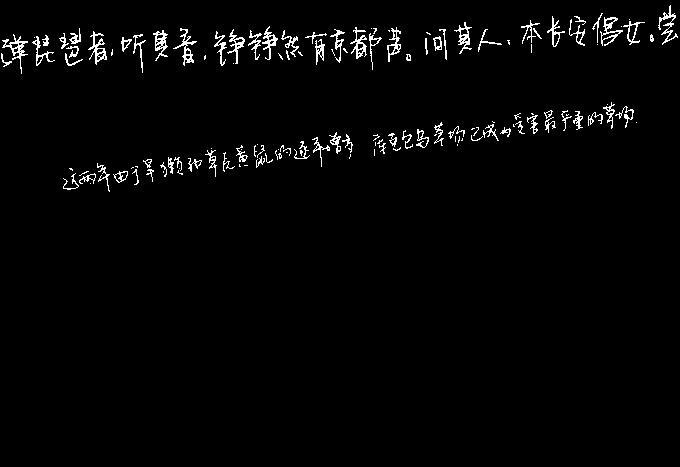 弹琵琶者,听其音,铮铮然有京都声。问其人,本长安倡女。尝
这两年由于旱獭和草原黄鼠的逐年增多 库克乌草场已成为受害最严重的草场.